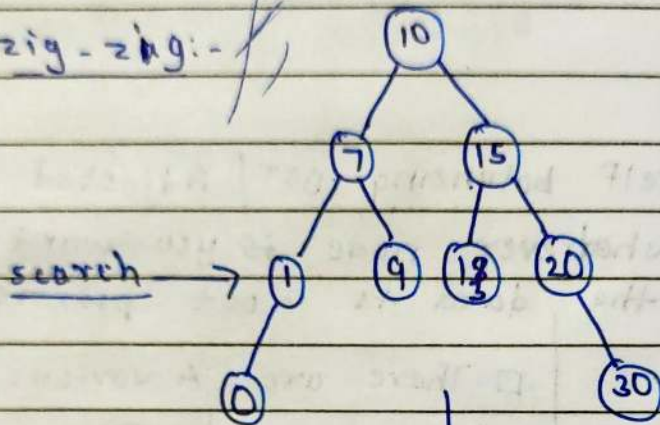 zig-zig:-
10
7 15
search → 1 9 13 20
0 30